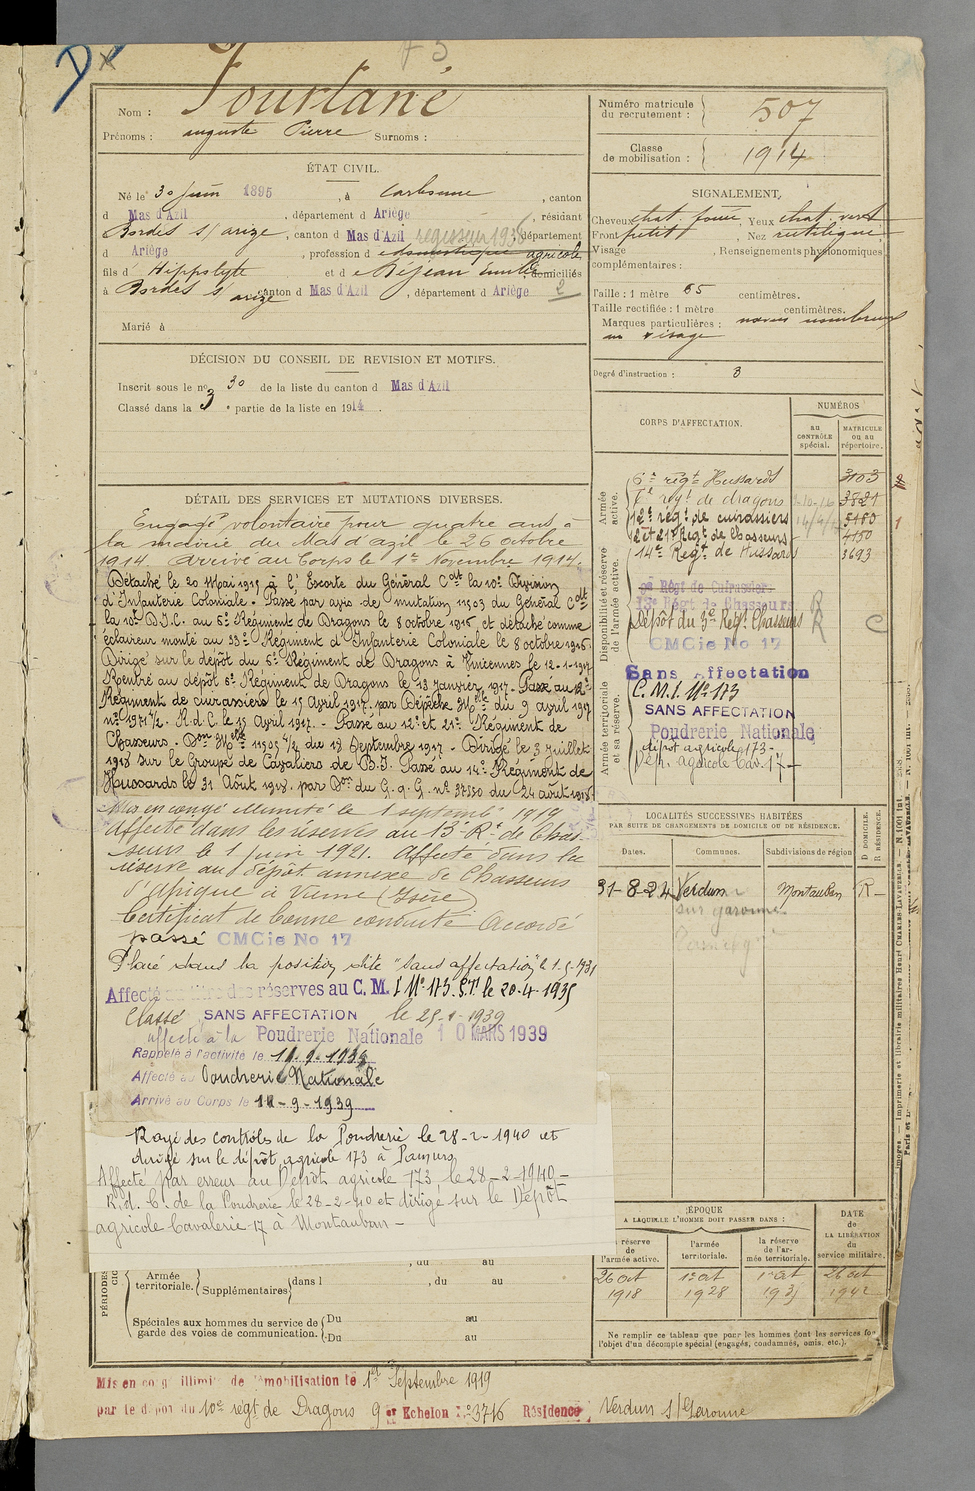 Nom : Fourtané
Prénoms : auguste Pierre Surnoms :
Numéro matricule du recrutement : 507
Classe de mobilisation : 1914
ÉTAT CIVIL.
Né le 30 juin 1895, à Carbonne, canton
d Mas d'Azil, département d Ariège, résidant
Bordes s/ arize, canton d Mas d'Azil regisseur 1938 département
d Ariège, profession d domestique agricole
fils d' Hippolyte et d domiciliés
à Bordes s/ arize canton d Mas d'Azil, département d Ariège 2
Marié à
SIGNALEMENT.
Cheveux chat. foncé, Yeux chat. vert
Front petit, Nez rectiligne
Visage, Renseignements physionomiques
complémentaires :
Taille : 1 mètre 65 centimètres.
Taille rectifiée : 1 mètre centimètres.
Marques particulières : naevus nombreux
au visage
Degré d'instruction : 3
DÉCISION DU CONSEIL DE REVISION ET MOTIFS.
Inscrit sous le no 30 de la liste du canton d Mas d'Azil
Classé dans la 3e partie de la liste en 1914.
CORPS D'AFFECTATION.
NUMÉROS
au CONTRÔLE spécial.
MATRICULE ou au répertoire.
Armée active.
6e régt Hussards 3103
6e régt de dragons 3821
12e régt de cuirassiers 5180
12 et 21e Régt de Chasseurs 4150
14e Régt de Hussards 3693
Disponibilité et réserve de l'armée active.
9e Régt de Cuirassiers
13e Régt de Chasseurs
Dépôt du 3e Régt Chasseurs
CMCie No 17
Sans Affectation
Armée territoriale et sa réserve.
C.M.I. No 173
SANS AFFECTATION
Poudrerie Nationale
dépôt agricole 173-
Dép. agricole Cav. 17-
DÉTAIL DES SERVICES ET MUTATIONS DIVERSES.
Engagé volontaire pour quatre ans à
la mairie du Mas d'azil le 26 octobre
1914. Arrivé au Corps le 1er Novembre 1914.
Détaché le 20 Mai 1915 à l'Escorte du Général Cdt la 10e Division
d'Infanterie Coloniale. Passé par avis de mutation 11503 du Général Cdt
la 10e D.I.C. au 6e Régiment de Dragons le 8 octobre 1916 et détaché comme
éclaireur monté au 33e Régiment d'Infanterie Coloniale le 8 octobre 1916.
Dirigé sur le dépôt du 6e Régiment de Dragons à Vincennes le 12-1-1917
Rentré au dépôt 6e Régiment de Dragons le 13 Janvier 1917. Passé au 12e
Régiment de cuirassiers le 15 Avril 1917. par Dépêche Mlle du 9 avril 1917
no 19717 1/2. R.d.C. le 15 Avril 1917. - Passé au 12e et 21e Régiment de
Chasseurs. Don Mlle 11505 4/2 du 18 Septembre 1917 - Dirigé le 3 Juillet
1918 sur le Groupe de Cavaliers de B.I. Passé au 14e Régiment de
Hussards le 31 Août 1918. par Don du G.Q.G. no 37550 du 24 août 1918
Mis en congé illimité le 1 septembre 1919
Affecté dans les réserves au 13e Rt de Chas-
seurs le 1 juin 1921. Affecté dans la
réserve au dépôt annexe de Chasseurs
d'Afrique à Vienne (Isère)
Certificat de bonne conduite Accordé
passé CMCie No 17
Placé dans la position dite "Sans affectation" le 1.5.1931
Affecté des réserves au C.M.I No 173 S.P. le 20-4-1935
Classé SANS AFFECTATION, le 25-1-1939
affecté à la Poudrerie Nationale 10 MARS 1939
Rappelé à l'activité le 11.9.1939
Affecté au Poudrerie Nationale
Arrivé au Corps le 11-9-1939
Rayé des contrôles de la Poudrerie le 28-2-1940 et
dirigé sur le dépôt agricole 173 à Pamiers
Affecté par erreur au Dépôt agricole 173 le 28-2-1940-
R.d.C. de la Poudrerie le 28-2-40 et dirigé sur le Dépôt
agricole Cavalerie 17 à Montauban-
LOCALITÉS SUCCESSIVES HABITÉES
PAR SUITE DE CHANGEMENTS DE DOMICILE OU DE RÉSIDENCE.
Dates. Communes. Subdivisions de région
D. DOMICILE. R. RÉSIDENCE.
31-8-24 Verdun sur garonne Montauban R-
ÉPOQUE
A LAQUELLE L'HOMME DOIT PASSER DANS :
réserve de l'armée active.
l'armée territoriale.
la réserve de l'armée territoriale.
DATE de LA LIBÉRATION du service militaire.
26 oct 1918
1er oct 1928
26 oct
Ne remplir ce tableau que pour les hommes dont les services font
l'objet d'un décompte spécial (engagés, condamnés, omis, etc.).
PÉRIODES
Armée territoriale. Supplémentaires dans l, du au
Spéciales aux hommes du service de garde des voies de communication. Du au
Du au
Mis en congé illimité de démobilisation le 1er Septembre 1919
par le dépôt du 10e régt de Dragons 9e Echelon No 3716 Résidence Verdun s/ Garonne